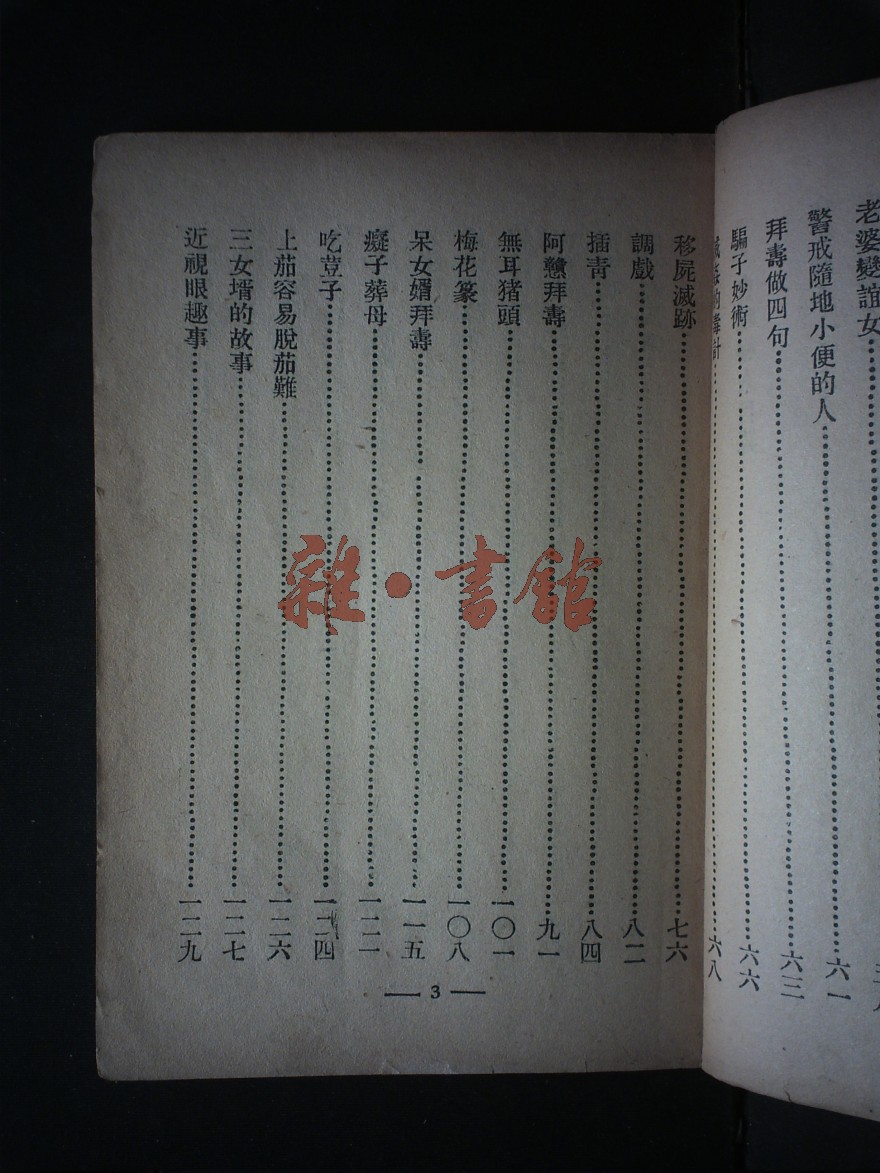 老婆變誼女
警戒隨地小便的人……六一
拜壽做四句……六三
騙子妙術……六六
姦的毒計……六八
移屍滅跡……七六
調戲……八二
插靑……八四
阿戇拜壽……九一
無耳猪頭……一〇一
梅花篆……一〇八
呆女婿拜壽……一一五
癡子葬母……一二二
吃荳子……一二四
上茄容易脫茄難……一二六
三女壻的故事……一二七
近視眼趣事……一二九
— 3 —
雜·書館